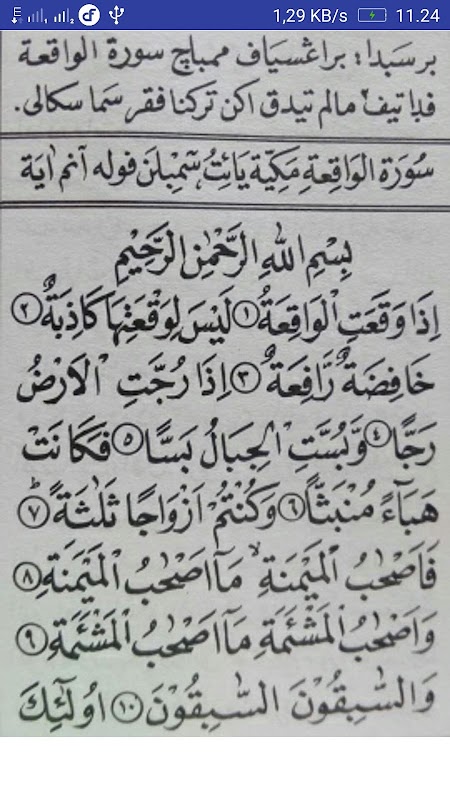 1,29 KB/s 11.24
برسبدا؛ براڠسياف ممباچ سورة الواقعة
فدا٢تيف٢ مالم تيدق اكن تركنا فقر سما سكالى.
سُوْرَةُ الوَاقِعَةِ مَكِّيَّة يَائِتُ سَمْبِلَن فُولُه أنم اٰيَة
بِسْمِ اللّٰهِ الرَّحْمٰنِ الرَّحِيْمِ
اِذَا وَقَعَتِ الْوَاقِعَةُ ۝١ لَيْسَ لِوَقْعَتِهَا كَاذِبَةٌ ۝٢
خَافِضَةٌ رَّافِعَةٌ ۝٣ اِذَا رُجَّتِ الْاَرْضُ
رَجًّا ۝٤ وَّبُسَّتِ الْجِبَالُ بَسًّا ۝٥ فَكَانَتْ
هَبَآءً مُّنْبَثًّا ۝٦ وَكُنْتُمْ اَزْوَاجًا ثَلٰثَةً ۝٧
فَاَصْحٰبُ الْمَيْمَنَةِ ۙ مَآ اَصْحٰبُ الْمَيْمَنَةِ ۝٨
وَاَصْحٰبُ الْمَشْـَٔمَةِ مَآ اَصْحٰبُ الْمَشْـَٔمَةِ ۝٩
وَالسّٰبِقُوْنَ السّٰبِقُوْنَ ۝١٠ اُولٰٓئِكَ